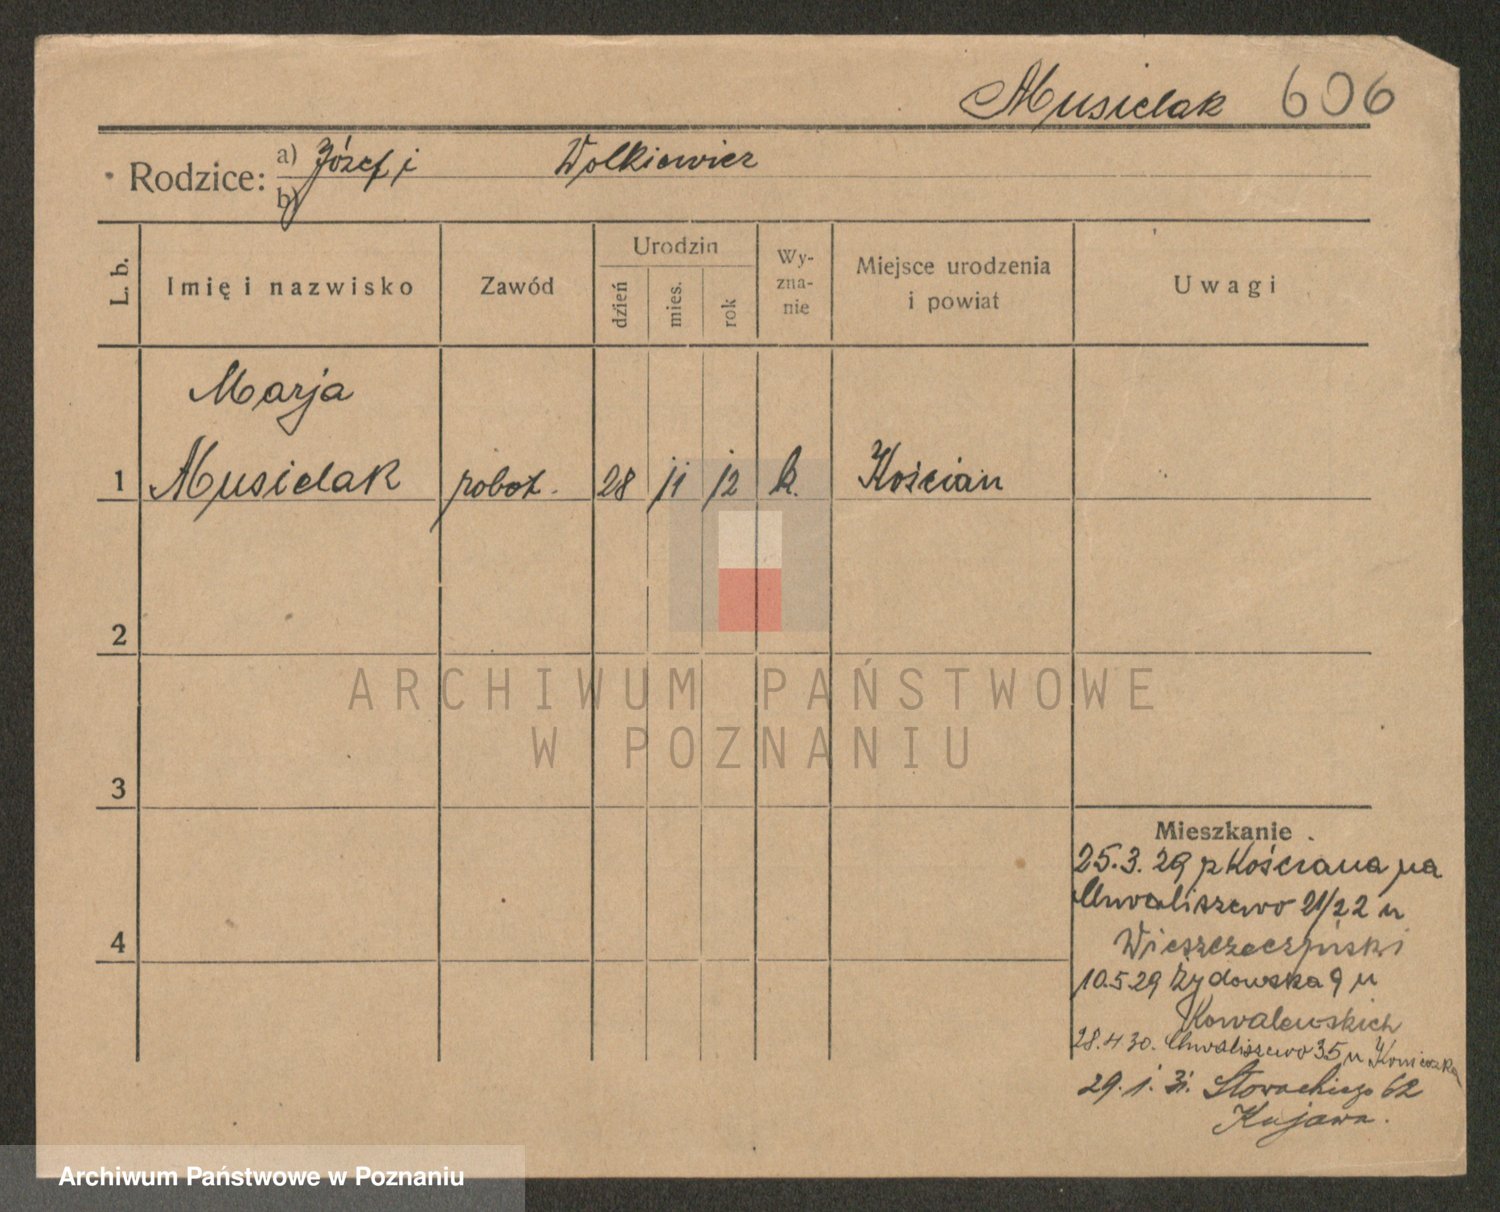 Musielak 606
Rodzice: a) Józef i Wolkiewicz
b)
L. b. Imię i nazwisko Zawód Urodzin dzień mies. rok Wy-zna-nie Miejsce urodzenia i powiat Uwagi
Marja
1 Musielak robot. 28 11 12 k. Kościan
2
3
4
Mieszkanie
25.3.29 z Kościana na
Chwaliszewo 21/22 u
10.5 29 Żydowska 9 u
Kowalewskich
28.4.30. Chwaliszewo 35 u
29. 1. 31. Słowackiego 62
Kujawa.
ARCHIWUM PAŃSTWOWE
W POZNANIU
Archiwum Państwowe w Poznaniu